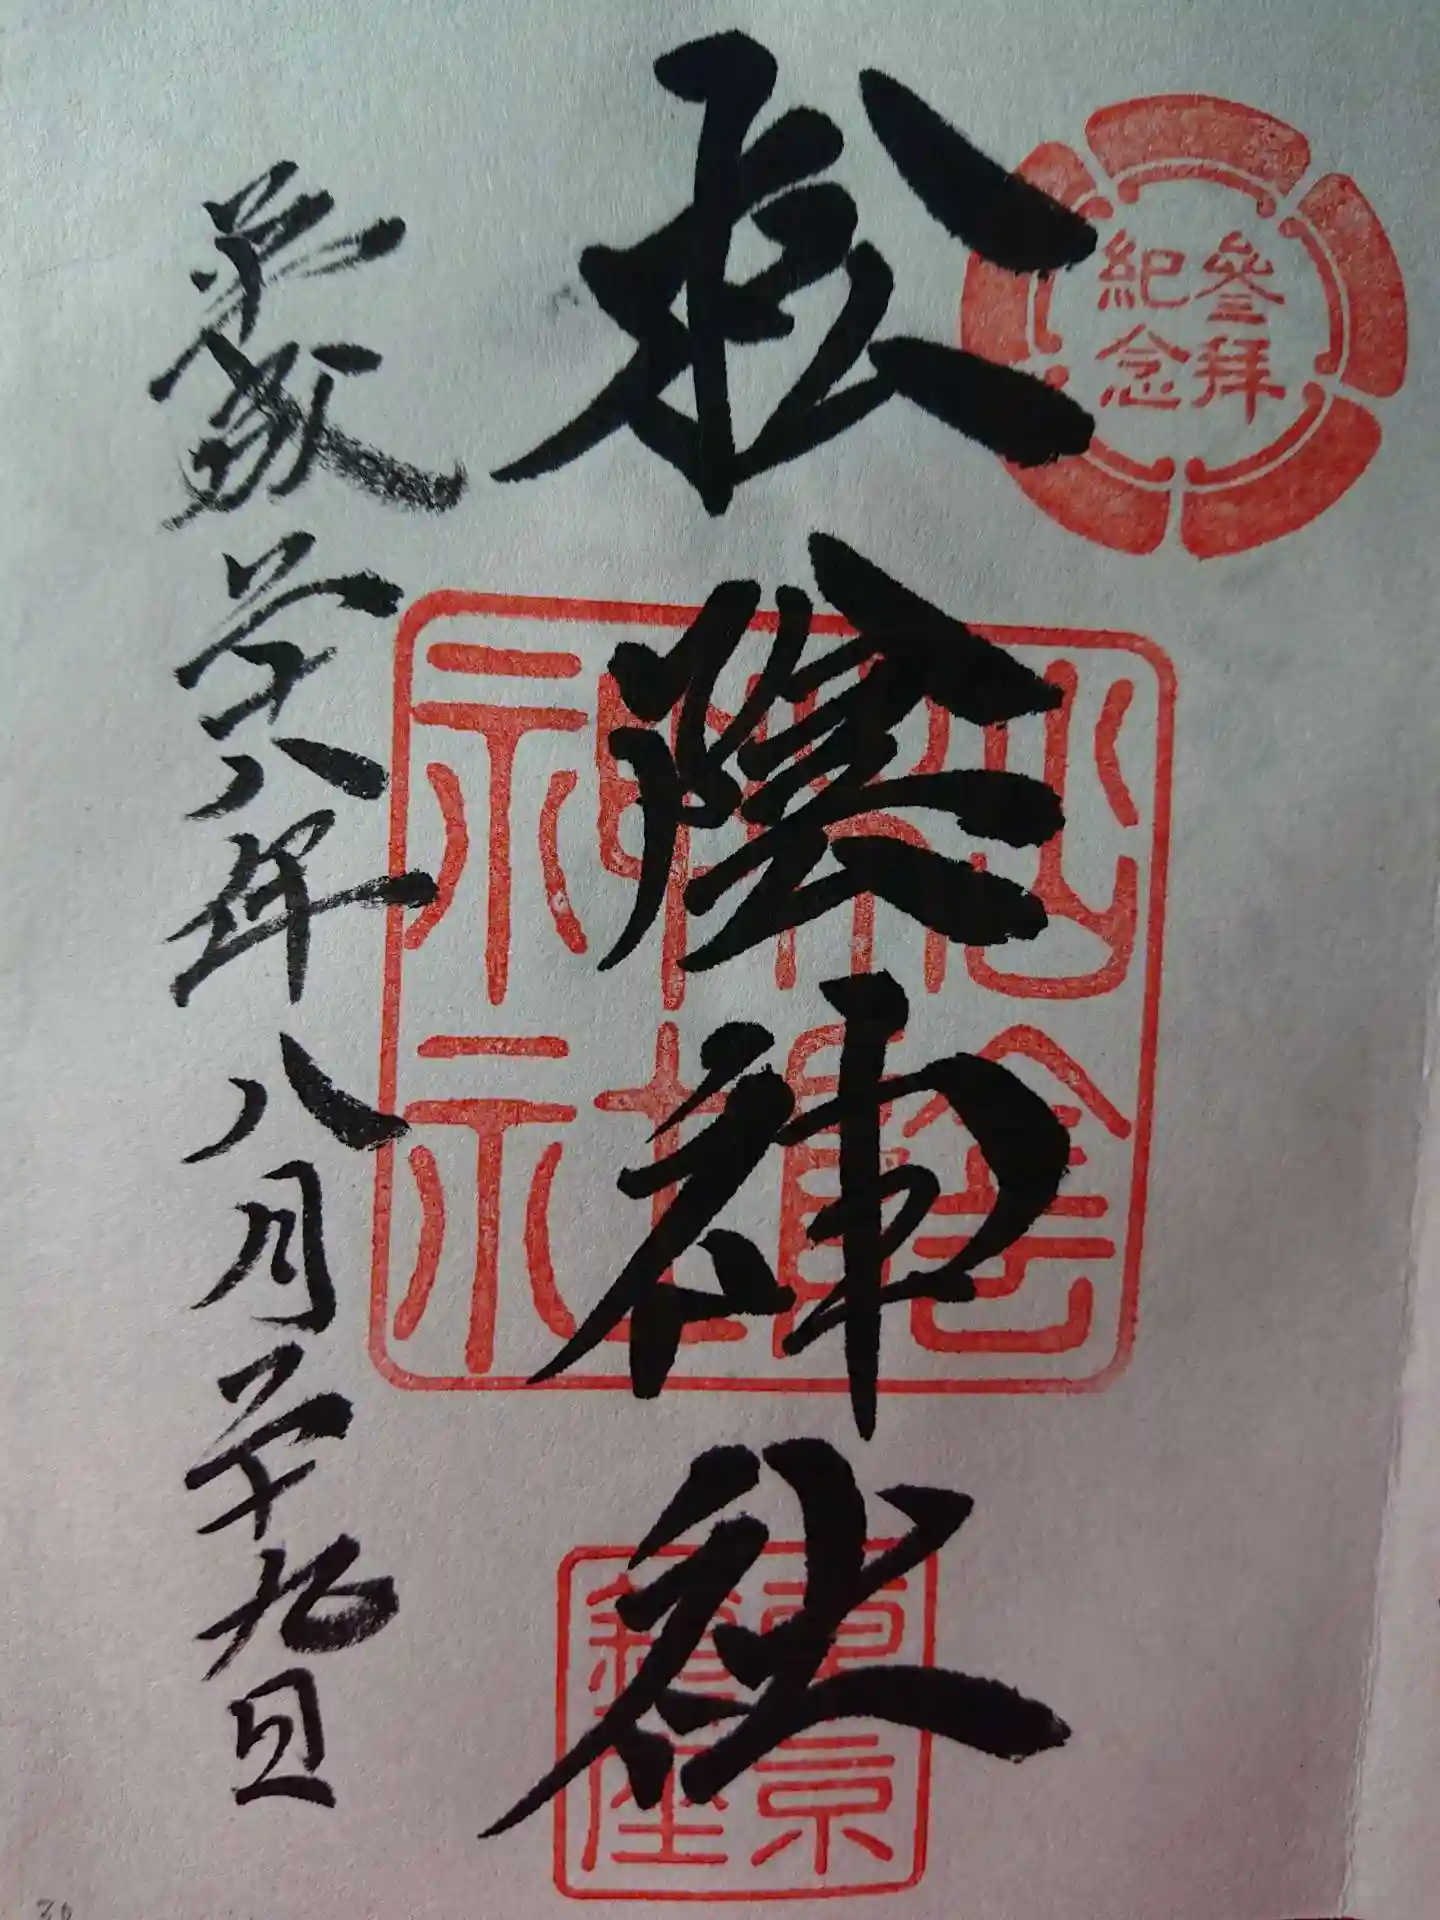 參拜
紀念
松陰神社
松陰
神社
東京
鎮座
平成二十八年八月二十九日